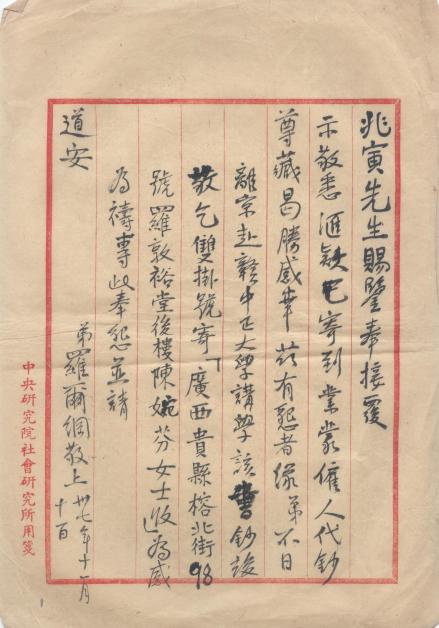 兆寅先生賜鑒奉接覆
示敬悉滙款已寄到業蒙僱人代鈔
尊藏曷勝感幸茲有懇者緣弟不日
離京赴贛中正大學講學該書鈔竣
敬乞雙掛號寄「廣西貴縣榕北街98
號羅敦裕堂後樓陳婉芬女士收」為感
為禱專此奉懇並請
道安
弟羅爾綱敬上卅七年十一月
十日
中央研究院社會研究所用箋